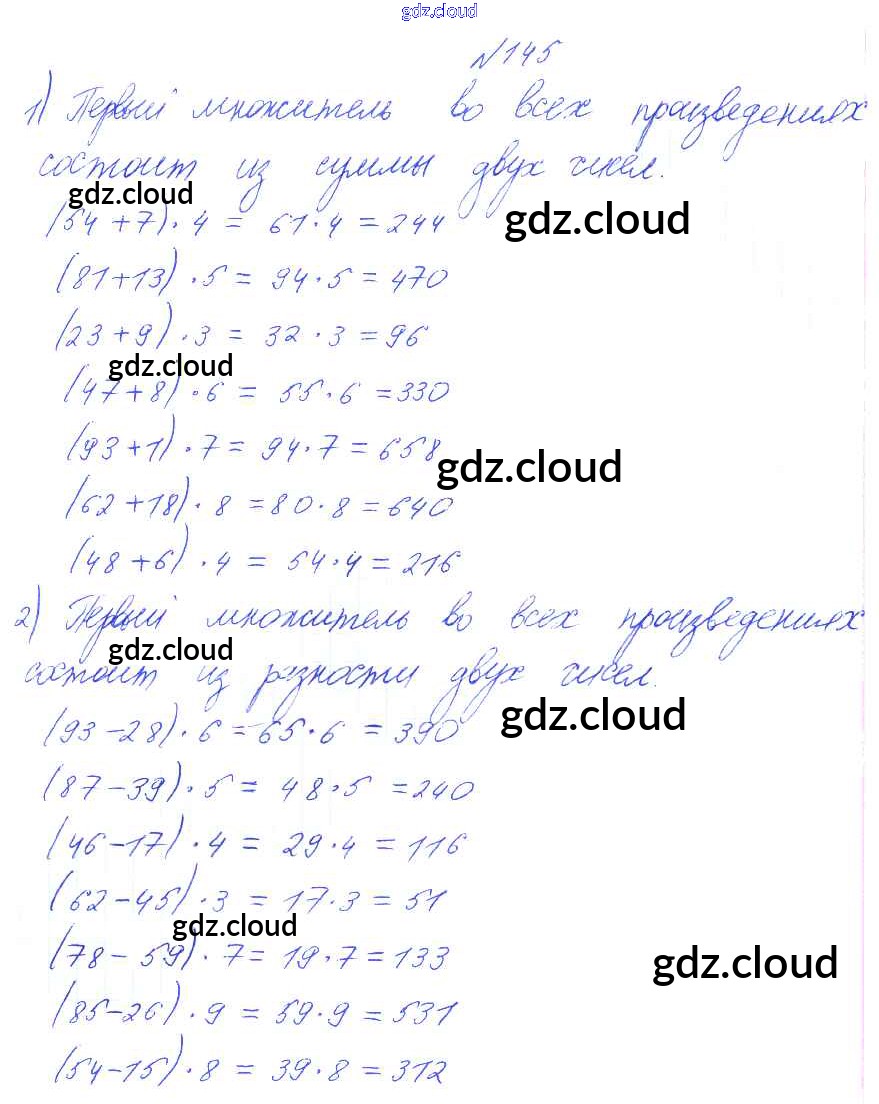 gdz.cloud
№145
1) Первый множитель во всех произведениях
состоит из суммы двух чисел.
gdz.cloud
gdz.cloud
(54+7)·4 = 61·4 = 244
(81+13)·5 = 94·5 = 470
(23+9)·3 = 32·3 = 96
gdz.cloud
(47+8)·6 = 55·6 = 330
(93+1)·7 = 94·7 = 658
gdz.cloud
(62+18)·8 = 80·8 = 640
(48+6)·4 = 54·4 = 216
2) Первый множитель во всех произведениях
gdz.cloud
состоит из разности двух чисел.
gdz.cloud
(93-28)·6 = 65·6 = 390
(87-39)·5 = 48·5 = 240
(46-17)·4 = 29·4 = 116
(62-45)·3 = 17·3 = 51
gdz.cloud
(78-59)·7 = 19·7 = 133
gdz.cloud
(85-26)·9 = 59·9 = 531
(54-15)·8 = 39·8 = 312